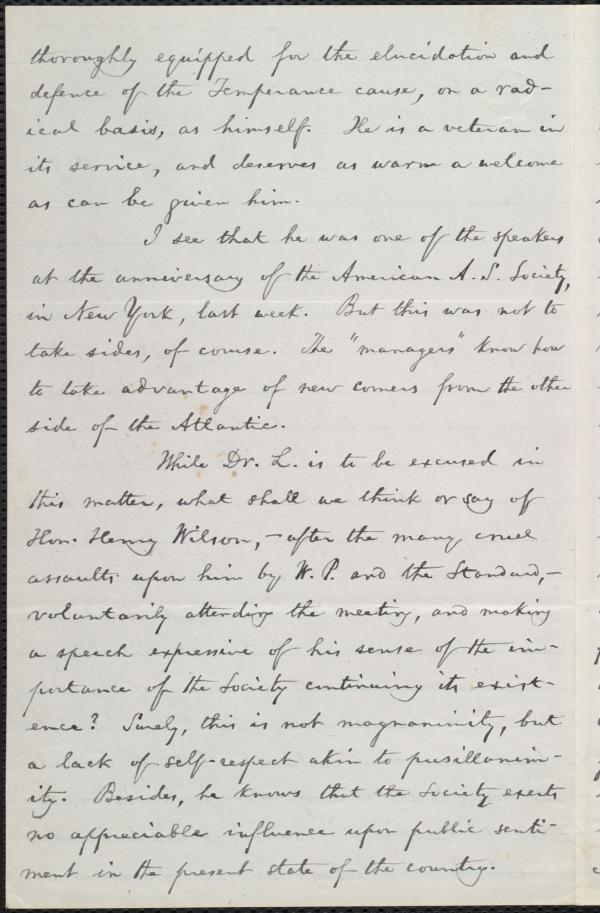 thoroughly equipped for the elucidation and
defence of the Temperance cause, on a rad-
ical basis, as himself. He is a veteran in
its service, and deserves as warm a welcome
as can be given him.
I see that he was one of the speakers
at the anniversary of the American A. S. Society,
in New York, last week. But this was not to
take sides, of course. The "managers" know how
to take advantage of new comers from the other
side of the Atlantic.
While Dr. L. is to be excused in
this matter, what shall we think or say of
Hon. Henry Wilson,—after the many cruel
assaults upon him by W. P. and the Standard,—
voluntarily attending the meeting, and making
a speech expressive of his sense of the im-
portance of the Society continuing its exist-
ence? Surely, this is not magnanimity, but
a lack of self-respect akin to pusillanim-
ity. Besides, he knows that the Society exerts
no appreciable influence upon public senti-
ment in the present state of the country.